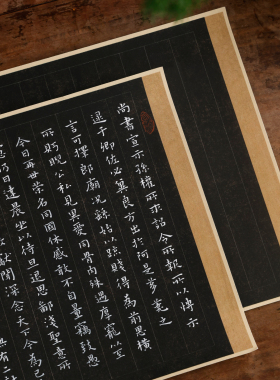 尚書宣示孫權所求詔令所報所以博示
逮于卿佐必冀良方出於阿是芻蕘之
言可擇郎廟況繇始以疏賤得為前恩橫
所盱睨公私見異愛同骨肉殊遇厚寵以至
今日再世榮名同國休慼敢不自量竊致愚
仍日達晨坐以待旦退思鄙淺聖意所
獻聞深念天下今為已
無有二